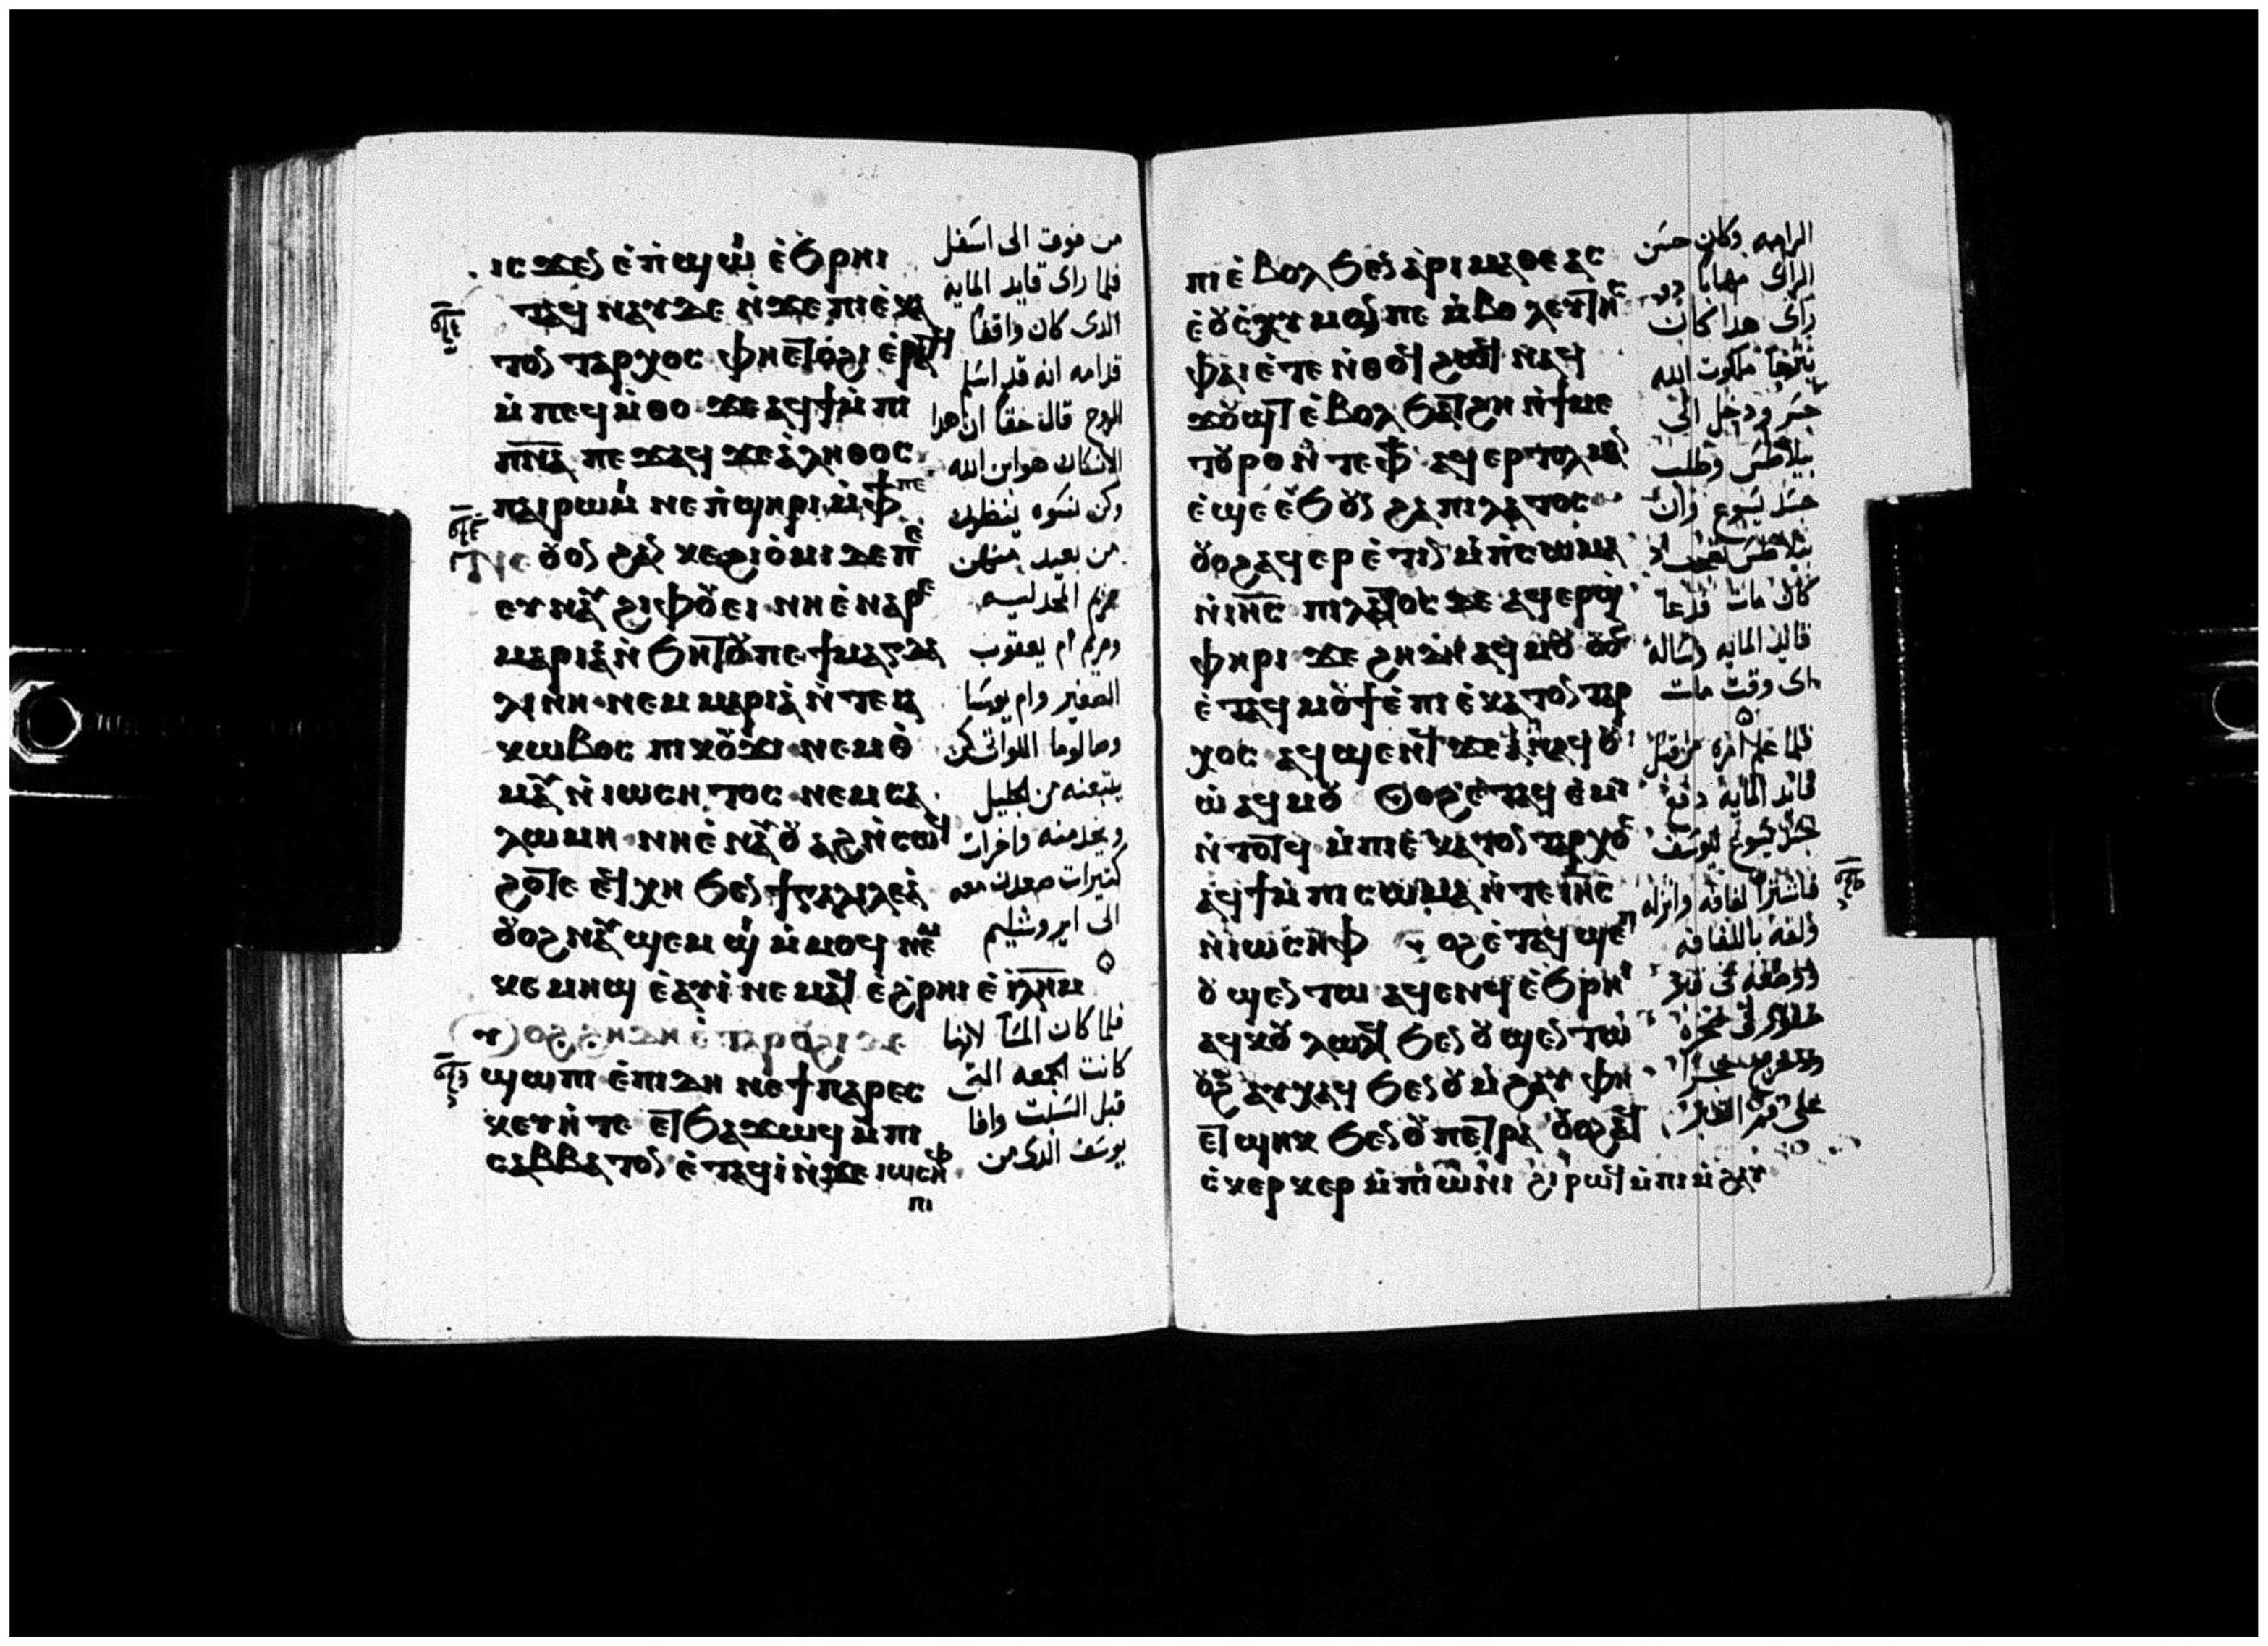 ⲓⲥϫⲉⲛ ⲉ̇ⲡϣⲱⲓ ⲉ̇ϧⲣⲏⲓ
ⲧⲁϥ ⲛⲁⲩ ⲇⲉ ⲛ̇ϫⲉ ⲡⲓⲉ̇ⲕⲁ
ⲧⲟⲛⲧⲁⲣⲭⲟⲥ ⲫⲏⲉⲧⲟϩⲓ ⲉ̇ⲣⲁⲧϥ
ⲙ̇ⲡⲉϥⲙ̇ⲑⲟ ϫⲉ ⲁϥϯ ⲙ̇ⲡⲓ
ⲡ̅ⲛ̅ⲁ̅ ⲡⲉϫⲁϥ ϫⲉ ⲁ̇ⲗⲏⲑⲟⲥ
ⲡⲁⲓⲣⲱⲙⲓ ⲛⲉ ⲡ̇ϣⲏⲣⲓ ⲙ̇ⲫϯ ⲡⲉ
ⲛⲉ ⲟⲩⲟⲛ ϩⲁⲛ ⲕⲉϩⲓⲟ̇ⲙⲓ ⲇⲉ ⲡⲉ
ⲉⲩⲛⲁⲩ ϩⲓⲫⲟⲩⲉⲓ ⲛⲏ ⲉ̇ⲛⲁⲣⲉ
ⲙⲁⲣⲓⲁ ⲛ̇ϧⲏⲧⲟⲩ ⲡⲉ ϯⲙⲁⲅⲇⲁ
ⲗⲓⲛⲏ ⲛⲉⲙ ⲙⲁⲣⲓⲁ ⲛ̇ⲧⲉ ⲓⲁ
ⲕⲱⲃⲟⲥ ⲡⲓⲕⲟⲩϫⲓ ⲛⲉⲙ ⲑ̇
ⲙⲁⲩ ⲛ̇ⲓⲱⲥⲏⲧⲟⲥ ⲛⲉⲙ ⲥⲁ
ⲗⲱⲙⲏ ⲛⲏ ⲉ̇ⲛⲁⲩⲟⲩⲁϩ ⲛ̇ⲥⲱϥ
ϩⲟⲧⲉ ⲉϥⲭⲏ ϧⲉⲛ ϯⲅⲁⲗⲓⲗⲉⲁ
ⲟⲩⲟϩ ⲛⲁⲩϣⲉⲙϣⲓ ⲙ̇ⲙⲟϥ ⲛⲉⲙ
ⲕⲉⲙⲏϣ ⲉ̇ⲁⲩⲓ̇ ⲛⲉⲙⲁϥ ⲉ̇ϩⲣⲏⲓ ⲉ̇ⲓ̅ⲗ̅ⲏ̅ⲙ̅
ⲟⲩⲟϩ ϩⲏⲇⲏ ⲉ̇ⲧⲁ ⲣⲟⲩϩⲓ ⲇⲉ
ϣⲱⲡⲓ ⲉ̇ⲡⲓⲇⲏ ⲛⲉ ϯⲡⲁⲣⲁⲥ
ⲕⲉⲩⲏ ⲧⲉ ⲉⲧϧⲁϫⲱϥ ⲙ̇ⲡⲓ
ⲥⲁⲃⲃⲁⲧⲟⲛ ⲉ̇ⲧⲁϥⲓ̇ ⲛ̇ϫⲉ ⲓⲱⲥⲏⲫ
ⲡⲓ
من فوق الى اسفل
فلما راى قايد المايه
الدى كان واقفا
قدامه انه قد اسلم
الروح قال حقا ان هدا
الانسان هو ابن الله
وكن نسوه ينظرن
من بعيد منهن
مريم المجدليه
ومريم ام يعقوب
الصغير وام يوسا
وصالوما اللواتى كن
يتبعنه من الجليل
ويخدمنه واخرات
كتيرات صعدن معه
الى ايروشليم
فلما كان المسا لانها
كانت الجمعه التى
قبل السبت وافا
يوسف الدى من
ⲡⲓⲉ̇ⲃⲟⲗ ϧⲉⲛ ⲁⲣⲓⲙⲁⲑⲉⲁⲥ
ⲉ̇ⲟⲩⲉⲩⲥⲭⲩⲙⲱⲛ ⲡⲉ ⲙ̇ⲃⲟⲩⲗⲉⲩⲧⲏⲥ
ⲫⲁⲓ ⲉ̇ⲧⲉ ⲛ̇ⲑⲟϥ ϩⲱϥ ⲛⲁϥ
ϫⲟⲩϣⲧ ⲉ̇ⲃⲟⲗ ϧⲁⲧϩⲏ ⲛ̇ϯⲙⲉ
ⲧⲟⲩⲣⲟ ⲛ̇ⲧⲉ ⲫϯ ⲁϥⲉⲣⲧⲟⲗⲙⲁⲛ
ⲉ̇ϣⲉ ⲉ̇ϧⲟⲩⲛ ϩⲁ ⲡⲓⲗⲁⲧⲟⲥ
ⲟⲩⲟϩ ⲁϥⲉⲣⲉ̇ⲧⲓⲛ ⲙ̇ⲡⲥⲱⲙⲁ
ⲛ̇ⲓⲏⲥ ⲡⲓⲗⲁⲧⲟⲥ ⲇⲉ ⲁϥⲉⲣϣ
ⲫⲏⲣⲓ ϫⲉ ϩⲏⲇⲏ ⲁϥⲙⲟⲩ ⲟⲩⲟϩ
ⲉ̇ⲧⲁϥⲙⲟⲩϯ ⲉ̇ⲡⲓⲉ̇ⲕⲁⲧⲟⲛⲧⲁⲣ
ⲭⲟⲥ ⲁϥϣⲉⲛϥ ϫⲉ ⲁⲛ ⲁϥⲟⲩ
ⲱ̇ ⲁϥⲙⲟⲩ ⲟⲩⲟϩ ⲉ̇ⲧⲁϥⲉ̇ⲙⲓ
ⲛ̇ⲧⲟⲧϥ ⲙ̇ⲡⲓⲉ̇ⲕⲁⲧⲟⲛⲧⲁⲣⲭⲟⲥ
ⲁϥϯ ⲙ̇ⲡⲓⲥⲱⲙⲁ ⲛ̇ⲧⲉ ⲓⲏⲥ
ⲛ̇ⲓⲱⲥⲏⲫ ⲟⲩⲟϩ ⲉ̇ⲧⲁϥϣⲉⲡ
ⲟⲩϣⲉⲛⲧⲱ ⲁϥⲉⲛϥ ⲉ̇ϧⲣⲏⲓ
ⲁϥⲕⲟⲩⲗⲱⲗϥ ϧⲉⲛ ⲟⲩϣⲉⲛⲧⲱ
ⲟⲩⲟϩ ⲁⲩⲭⲁϥ ϧⲉⲛ ⲟⲩⲙ̇ϩⲁⲩ ⲫⲏ
ⲉⲧϣⲏⲕ ϧⲉⲛ ⲟⲩⲡⲉⲧⲣⲁ ⲟⲩⲟϩ ⲁϥ
ⲥ̇ⲕⲉⲣⲕⲉⲣ ⲙ̇ⲡⲓⲱ̇ⲛⲓ ϩⲓⲣⲱϥ ⲙ̇ⲡⲓⲙ̇ϩⲁⲩ
الرامه وكان حسن
الراى مهابا دو
راى هدا كان
ملكوت الله
جسر ودخل الى
بيلاطس وطلب
جسد يسوع وان
بيلاطس
كان مات فدعا
قايد المايه وساله
اى وقت مات
فلما علم امره من قبل
قايد المايه دفع
جسد يسوع ليوسف
فاشترا لفافه وانزله
ولفه باللفافه
ووضعه فى قبر
على